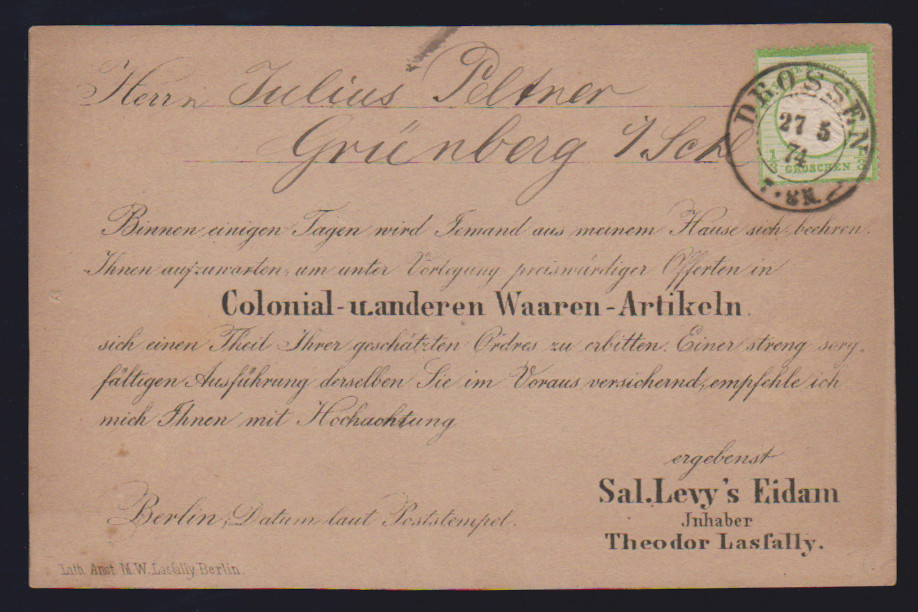 Herrn Julius Peltner
Grünberg i/Schl
DROSSEN
27 5
74
7-8N.
1/3 GROSCHEN 1/3
Binnen einigen Tagen wird Jemand aus meinem Hause sich beehren,
Ihnen aufzuwarten, um unter Vorlegung preiswürdiger Offerten in
Colonial-u.anderen Waaren-Artikeln
sich einen Theil Ihrer geschätzten Ordres zu erbitten. Einer streng sorg-
fältigen Ausführung derselben Sie im Voraus versichernd, empfehle ich
mich Ihnen mit Hochachtung
ergebenst
Sal.Levy's Eidam
Jnhaber
Theodor Lasfally.
Berlin, Datum laut Poststempel.
Lith. Anst. M.W. Lasfally, Berlin.